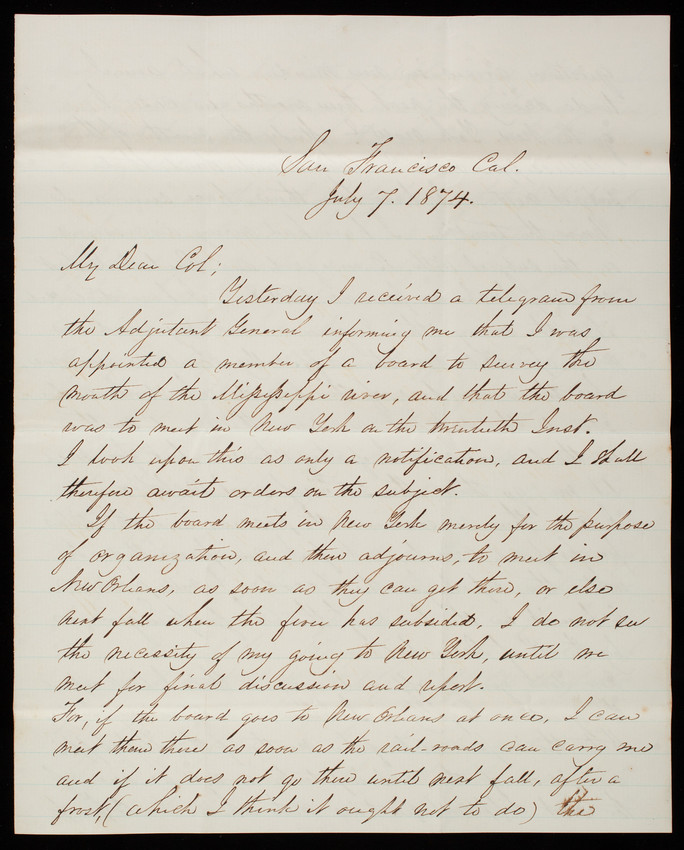 San Francisco Cal.
July 7. 1874.
My Dear Col;
Yesterday I received a telegram from
the Adjutant General informing me that I was
appointed a member of a board to survey the
mouth of the Mississippi river, and that the board
was to meet in New York on the twentieth Inst.
I look upon this as only a notification, and I shall
therefore await orders on the subject.
If the board meets in New York merely for the purpose
of organization, and then adjourns, to meet in
New Orleans, as soon as they can get there, or else
next fall when the fever has subsided, I do not see
the necessity of my going to New York, until we
meet for final discussion and report.
For, if the board goes to New Orleans at once, I can
meet them there as soon as the rail-roads can carry me
and if it does not go there until next fall, after a
frost, (which I think it ought not to do) the